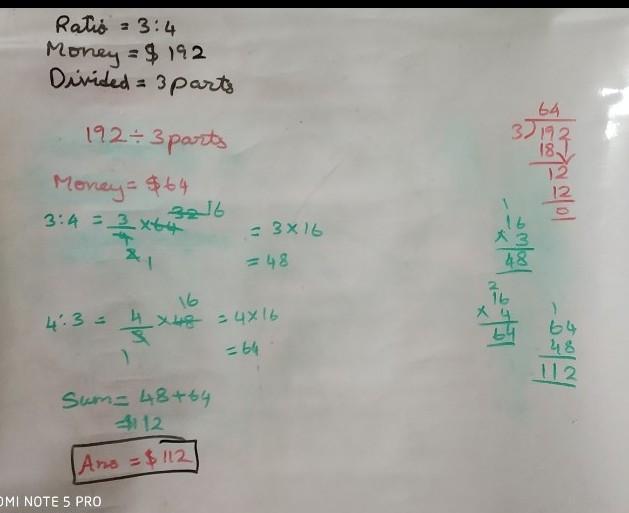 Ratio = 3:4
Money = $ 192
Divided = 3 parts
192 ÷ 3 parts
Money = $64
3:4 = 3/4 × 64 32 16 = 3 × 16
2 1 = 48
4:3 = 4/3 × 48 16 = 4 × 16
1 = 64
Sum = 48 + 64
= $112
Ans = $112
64
3)192
18↓
12
12
0
1
16
× 3
48
2
16
× 4
64
1
64
48
112
OMI NOTE 5 PRO